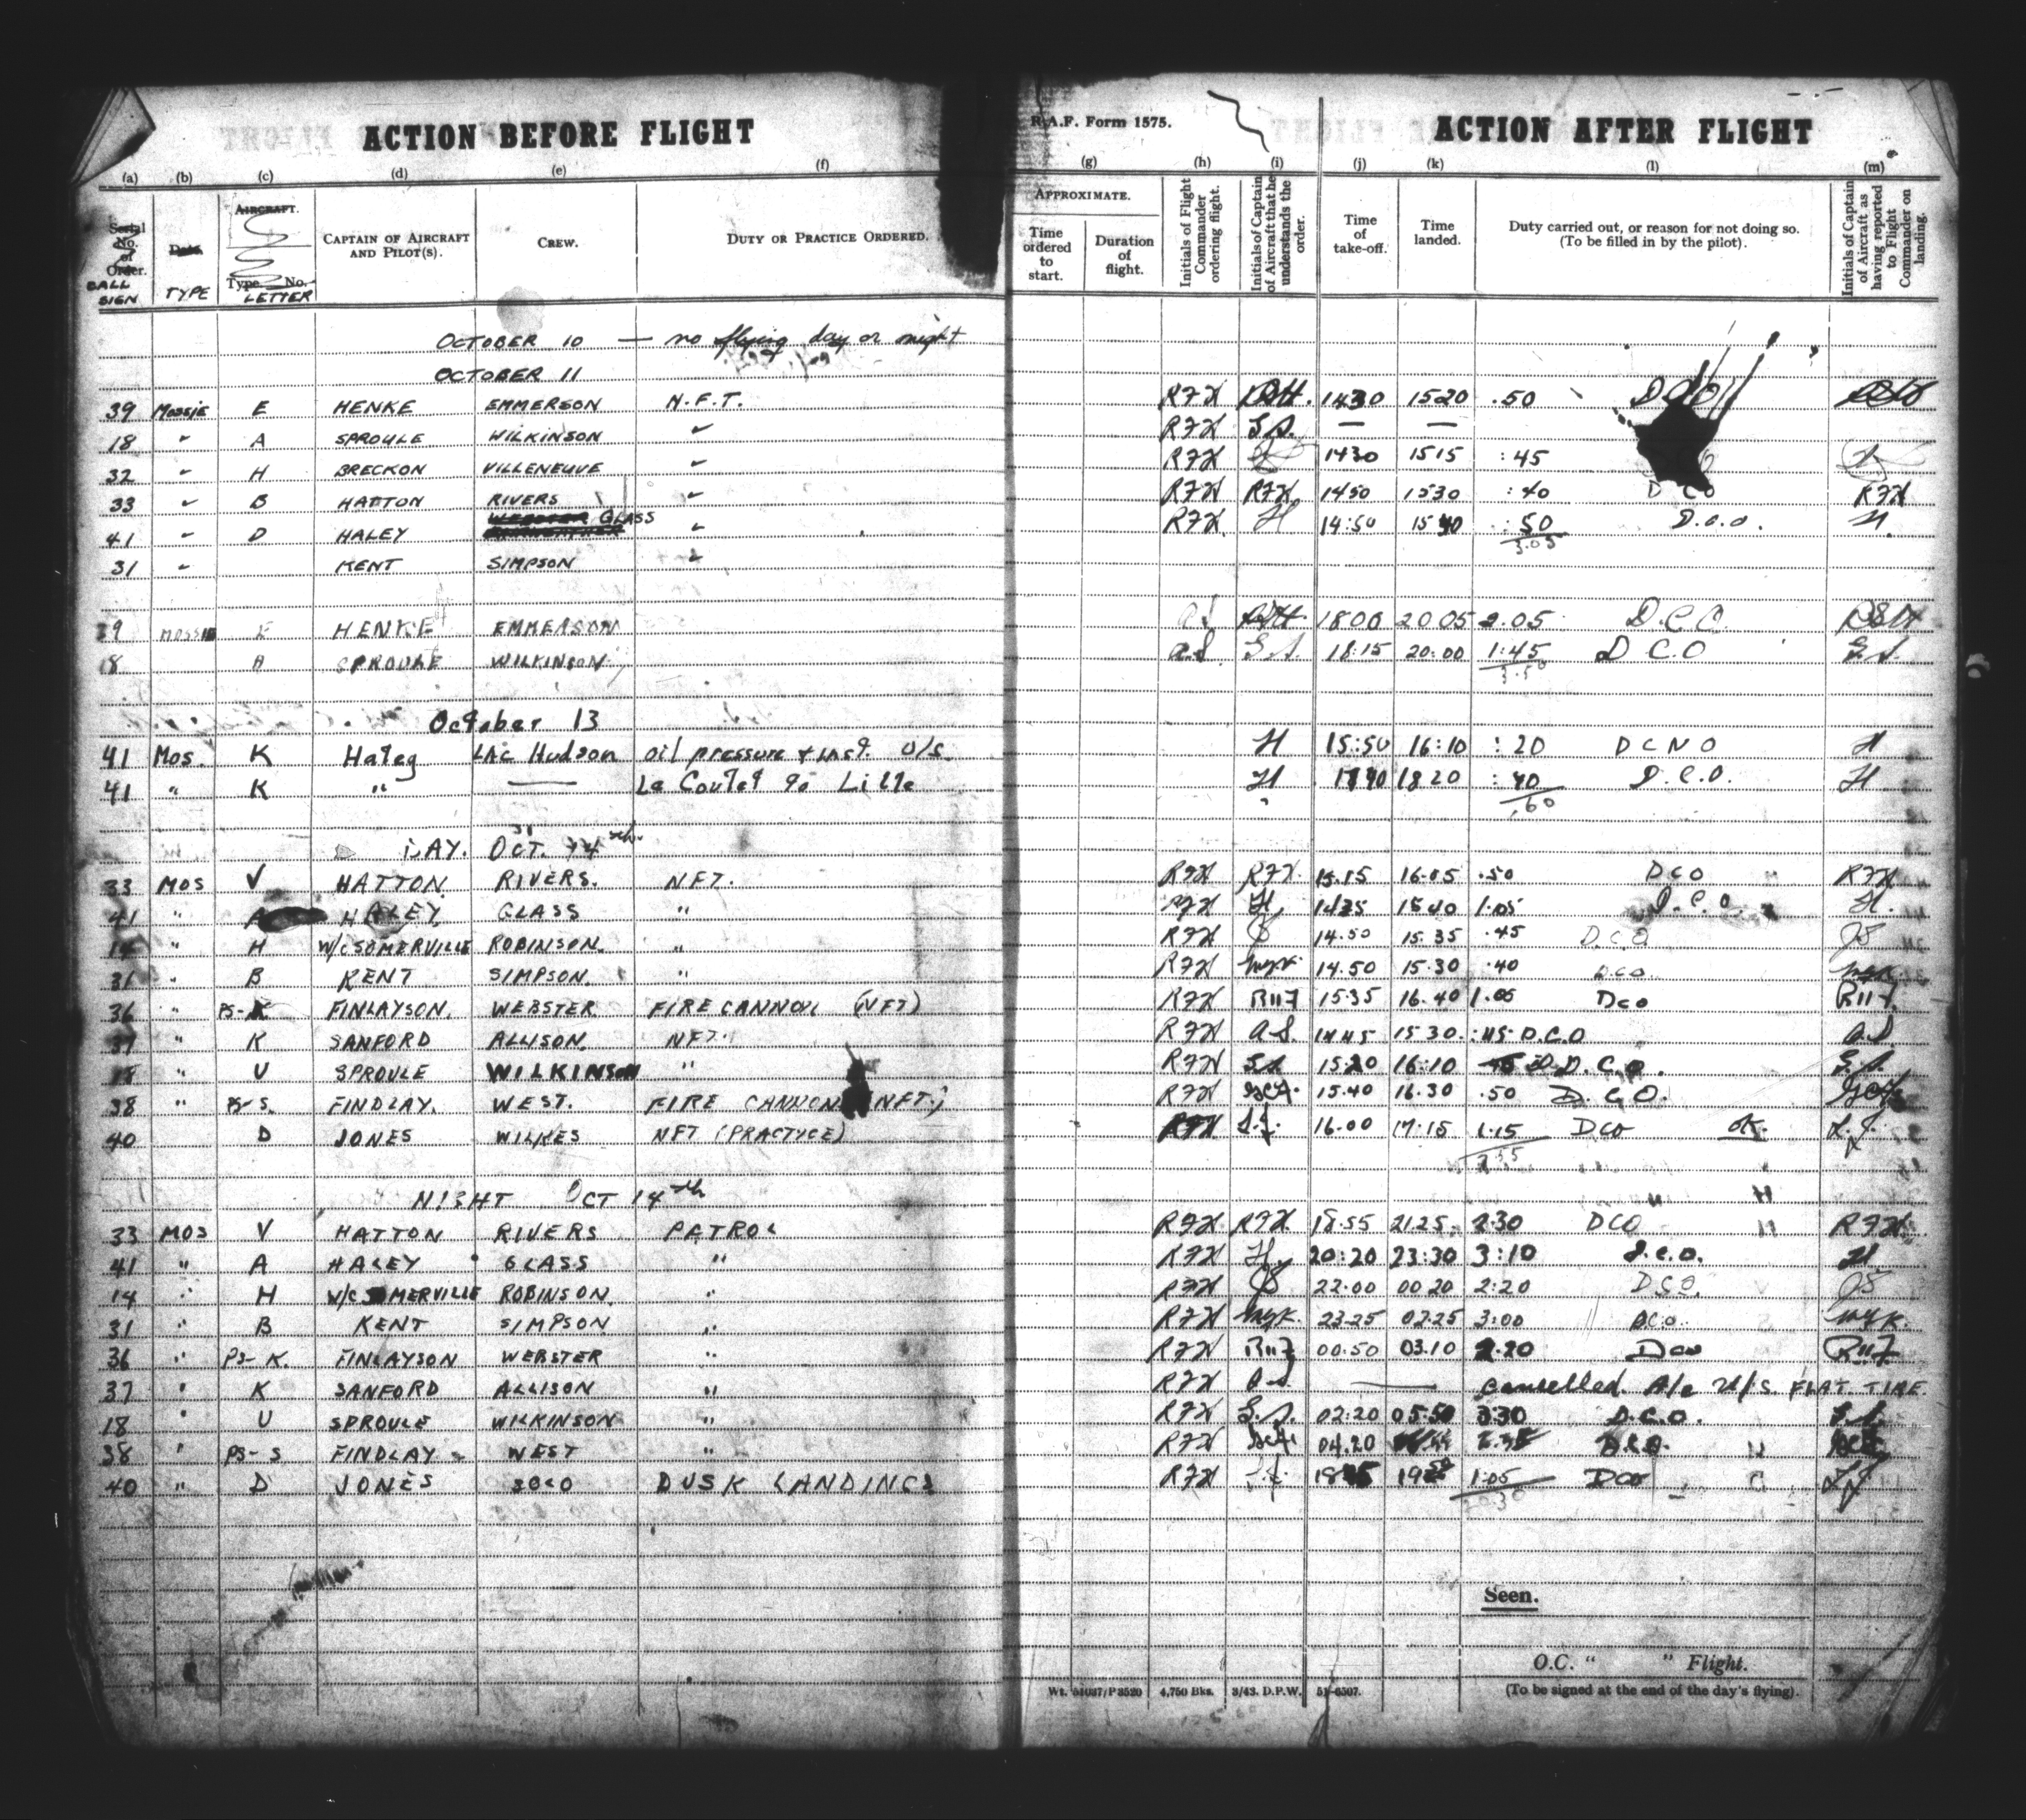 ACTION BEFORE FLIGHT R.A.F. Form 1575. ACTION AFTER FLIGHT
(a) (b) (c) (d) (e) (f) (g) (h) (i) (j) (k) (l) (m)
Serial No. of Order. CALL SIGN
Date. TYPE
AIRCRAFT. Type. No. LETTER
CAPTAIN OF AIRCRAFT AND PILOT(S).
CREW.
DUTY OR PRACTICE ORDERED.
APPROXIMATE.
Time ordered to start.
Duration of flight.
Initials of Flight Commander ordering flight.
Initials of Captain of Aircraft that he understands the order.
Time of take-off.
Time landed.
Duty carried out, or reason for not doing so. (To be filled in by the pilot).
Initials of Captain of Aircraft as having reported to Flight Commander on landing.
OCTOBER 10 — no flying day or night
OCTOBER 11
39 Mossie E HENKE EMMERSON N.F.T. RFH 1430 1520 .50 DCO
18 " A SPROULE WILKINSON " RFH G.S. — —
32 " H BRECKON VILLENEUVE " RFH 1430 1515 :45
33 " B HATTON RIVERS " RFH RFH 1450 1530 :40 DCO RFH
41 " D HALEY GLASS " RFH H 14:50 1540 :50 D.C.O. H
3.05
31 " KENT SIMPSON "
39 MOSSIE E HENKE EMMERSON 1800 2005 2.05 D.C.O.
18 A SPROULE WILKINSON a.S. G.S. 18:15 20:00 1:45 D C O G.S.
3.50
October 13
41 Mos. K Haley LAC Hudson oil pressure + inst. U/S. H 15:50 16:10 :20 D C N O H
41 " K " — Le Coutet to Lille H 1740 1820 :40 D.C.O. H
.60
DAY. OCT. 14th.
33 MOS V HATTON RIVERS. NFT. RFH RFH. 15.15 16.05 .50 DCO RFH
41 " A HALEY GLASS " RFH H. 1435 1540 1.05 D.C.O. H.
14 " H W/C SOMERVILLE ROBINSON. " RFH 14.50 15.35 .45 D.C.O JS
31 " B KENT SIMPSON. " RFH WYK. 14.50 15.30 .40 DCO WYK.
36 " PS-K FINLAYSON. WEBSTER FIRE CANNON (NFT) RFH 15.35 16.40 1.05 DCO
37 " K SANFORD ALLISON. NFT. RFH a.S. 1445 15 30. :45 D.C.O a.S.
18 " U SPROULE WILKINSON " RFH G.S. 15:20 16:10 D.C.O. G.S.
38 " PS-S. FINDLAY. WEST. FIRE CANNON (NFT.) RFH 15.40 16.30 .50 D.C.O.
40 D JONES WILKES NFT (PRACTYCE) RFH L.J. 16.00 17.15 1.15 DCO OK. L.J.
NIGHT OCT 14th
33 MOS V HATTON RIVERS PATROL RFH RFH. 18.55 21.25 2.30 DCO RFH.
41 " A HALEY GLASS " RFH H. 20:20 23:30 3:10 D.C.O. H
14 " H W/C SOMERVILLE ROBINSON. " RFH 22.00 00 20 2:20 DCO. JS
31 " B KENT SIMPSON " RFH WYK. 23.25 02.25 3:00 DCO. WYK.
36 " PS-K. FINLAYSON WEBSTER " RFH 00.50 03.10 2.20 DCO
37 " K SANFORD ALLISON " RFH a.S. — cancelled. A/c U/S. FLAT TIRE.
18 " U SPROULE WILKINSON " RFH G.S. 02:20 05:50 3:30 D.C.O. G.S.
38 " PS-S FINDLAY WEST " RFH 04.20 D.C.O.
40 " D JONES SOLO DUSK LANDINGS RFH L.J. 1:05 DCO L.J.
Seen.
O.C. " " Flight.
(To be signed at the end of the day's flying).
Wt. 51037/P3520 4,750 Bks. 3/43. D.P.W. 51-6507.